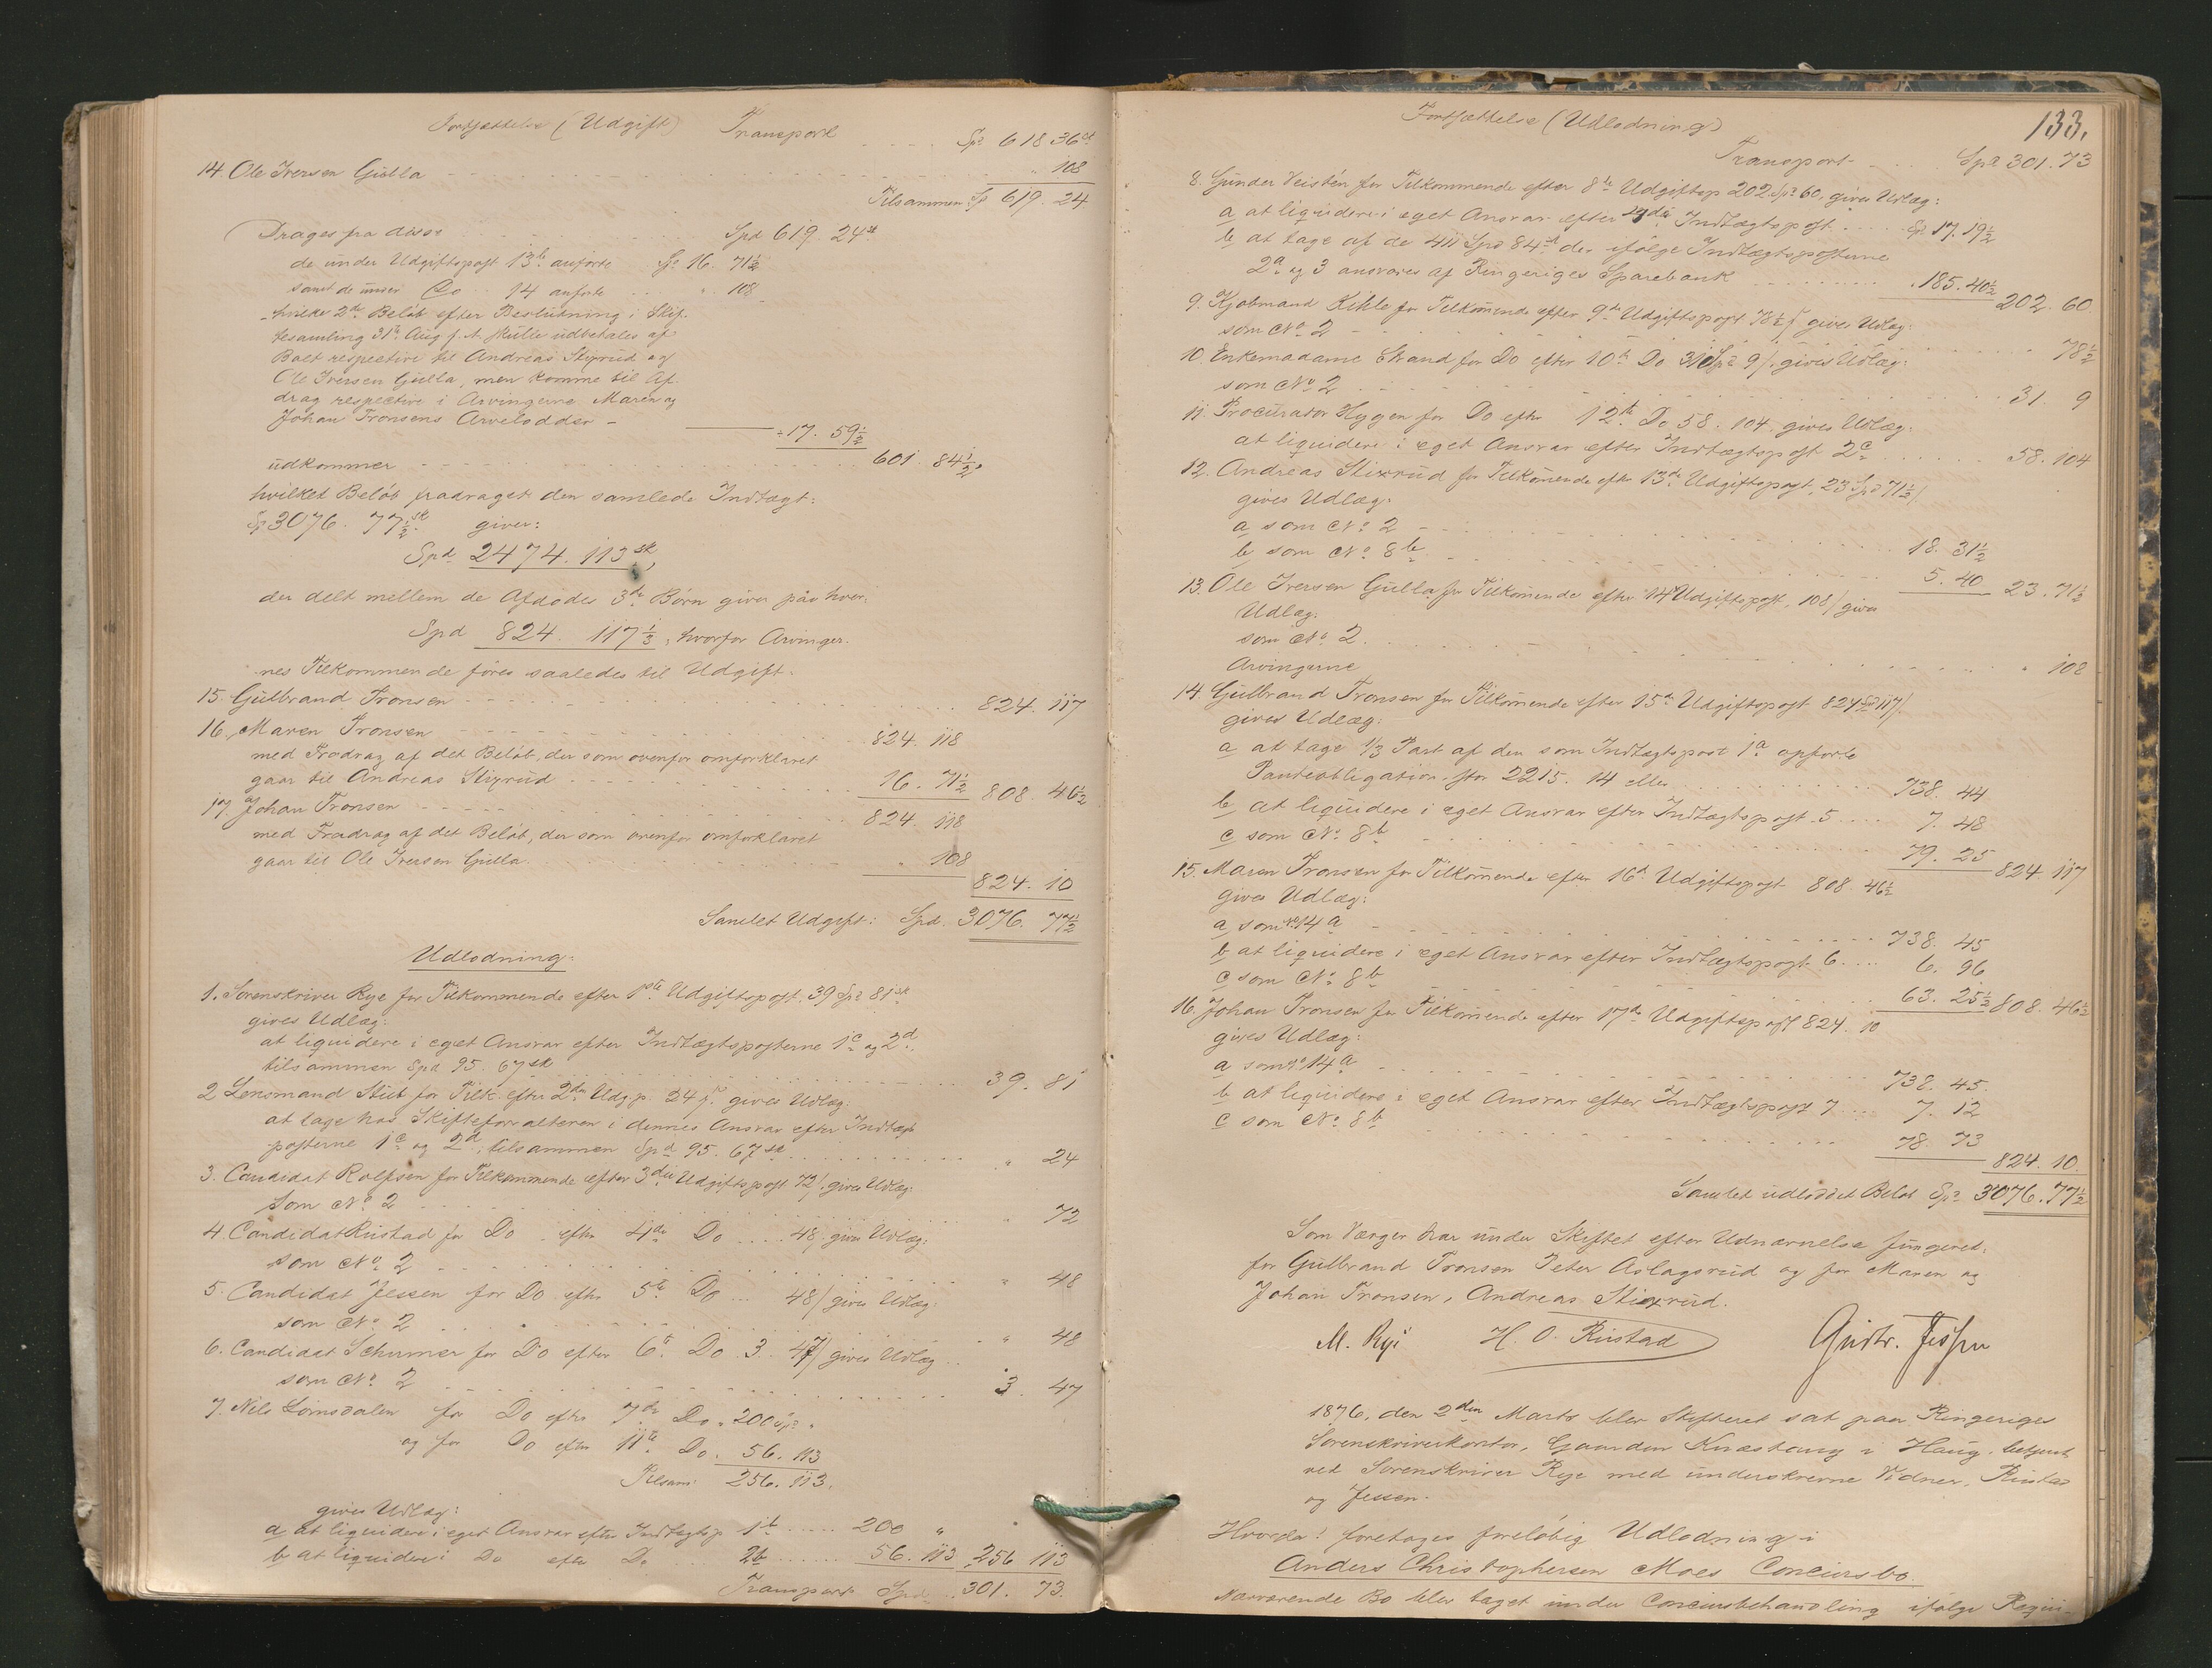 Fortsættelse (Udgift) Transport . . . . Spd 618 36sk
14. Ole Iversen Gulla - - - - " 108
Tilsammen Sp 619. 24
Drages fra disse Spd 619. 24sk
de under Udgiftspost 13de anførte Sp 16. 71½
samt de under Do 14 anførte " 108
hvilke 2de Beløb efter Beslutning i Skif-
tesamling 31te Aug f. A. skulle udbetales af
Boet respective til Andreas Stixrud og
Ole Iversen Gulla, men komme til Af-
drag respective i Arvingerne Maren og
Johan Tronsens Arvelodder - ÷ 17. 59½
udkommer - - - 601. 84½,
hvilket Beløb fradraget den samlede Indtægt:
Sp 3076. 77½ sk giver:
Spd 2474. 113 sk,
der delt mellem de Afdødes 3de Børn giver paa hver:
Spd 824. 117⅓, hvorfor Arvinger-
nes Tilkommende føres saaledes til Udgift.
15. Gulbrand Tronsen - - - 824. 117
16. Maren Tronsen - - - 824. 118
med Fradrag af det Beløb, der som ovenfor omforklaret
gaar til Andreas Stixrud - - - 16. 71½ 808. 46½
17. Johan Tronsen - - - 824. 118
med Fradrag af det Beløb, der som ovenfor omforklaret
gaar til Ole Iversen Gulla. - - - " 108
824. 10
Samlet Udgift: Spd. 3076. 77½
Udlodning:
1. Sorenskriver Rye for Tilkommende efter 1ste Udgiftspost, 39 Spd 81sk
gives Udlæg:
at liquidere i eget Ansvar efter Indtægtsposterne 1c og 2d
tilsammen Spd 95. 67sk . . . 39. 81
2 Lensmand Stub for Tilk. efter 2den Udg.p. 24 s. gives Udlæg:
at tage hos Skifteforvalteren i dennes Ansvar efter Indtægts
posterne 1c og 2d, tilsammen Spd 95. 67sk . . . " 24
3. Candidat Rolfsen for Tilkommende efter 3die Udgiftspost 72/ gives Udlæg:
som No 2 . . . " 72
4. Candidat Rustad for Do efter 4de Do . . . 48/ gives Udlæg:
som No 2 . . . " 48
5. Candidat Jessen for Do efter 5te Do . . . 48/ gives Udlæg:
som No 2 . . . " 48
6. Candidat Schumer for Do efter 6te Do 3. 47/ gives Udlæg
som No 2 . . . 3. 47
7. Nils Lomsdalen for Do efter 7de Do . 200 Spd "
og for Do efter 11te Do. 56. 113
Tilsam: 256. 113.
gives Udlæg:
a at liquidere i eget Ansvar efter Indtægtsp 1b . . . 200 "
b at liquidere i Do efter Do 2b . . . 56. 113 256 113
Transport Spd. 301. 73.
133.
Fortsættelse (Udlodning)
Transport - . . . Spd 301. 73
8. Gunder Veistén for Tilkommende efter 8de Udgiftsp 202 Spd 60, gives Udlæg:
a at liquidere i eget Ansvar efter 4de Indtægtspost . . . Sp. 17. 19½
b at tage af de 411 Spd 84sk der ifølge Indtægtsposterne
2a og 3 ansvares af Ringeriges Sparebank . . . " 185. 40½ 202. 60
9. Kjøbmand Kihle for Tilkommende efter 9de Udgiftspost 78½ s gives Udlæg:
som No 2 - - - " 78½
10. Enkemadame Strand for Do efter 10de Do 31 Spd 9/. gives Udlæg:
som No 2 . . . 31. 9
11. Procurator Hygen for Do efter 12te Do 58. 104. gives Udlæg:
at liquidere i eget Ansvar efter Indtægtspost 2c . . . 58. 104
12. Andreas Stixrud for Tilkommende efter 13de Udgiftspost, 23 Spd 71½/
gives Udlæg:
a som No 2 - - - 18. 31½
b som No 8b - - - 5. 40 23. 71½
13. Ole Iversen Gulla for Tilkommende efter 14 Udgiftspost, 108/ gives
Udlæg:
som No 2 . . . " 108
Arvingerne
14. Gulbrand Tronsen for Tilkommende efter 15de Udgiftspost 824 Spd 117/.
gives Udlæg:
a at tage 1/3 Part af den som Indtægtspost 1a opførte
Panteobligation, stor 2215. 14 eller . . . 738. 44
b at liquidere i eget Ansvar efter Indtægtspost 5 . . . 7. 48
c som No 8b . . . 79. 25 824. 117
15. Maren Tronsen for Tilkommende efter 16de Udgiftspost 808. 46½
gives Udlæg:
a som No 14a - - - 738. 45
b at liquidere i eget Ansvar efter Indtægtspost 6 . . . 6. 96
c som No 8b . . . 63. 25½ 808. 46½
16. Johan Tronsen for Tilkommende efter 17de Udgiftspost 824. 10
gives Udlæg:
a som No 14a - - - 738. 45.
b at liquidere i eget Ansvar efter Indtægtspost 7 . . . 7. 12
c som No 8b . . . 78. 73
824. 10.
Samlet udloddet Beløb Spd 3076. 77½
Som Værger har under Skiftet efter Udnævnelse fungeret:
for Gulbrand Tronsen Peter Aslagsrud og for Maren og
Johan Tronsen, Andreas Stixrud.
M. Rye H. O. Rustad Gustv. Jessen
1876, den 2den Marts blev Skifteret sat paa Ringeriges
Sorenskriverkontor, Gaarden Knæstang i Haug, betjent
ved Sorenskriver Rye med underskrevne Vidner, Rustad
og Jessen.
Hvorda! foretoges foreløbig Udlodning i
Anders Christophersen Moes Concursbo.
Nærværende Bo blev taget under Concursbehandling ifølge Requi-